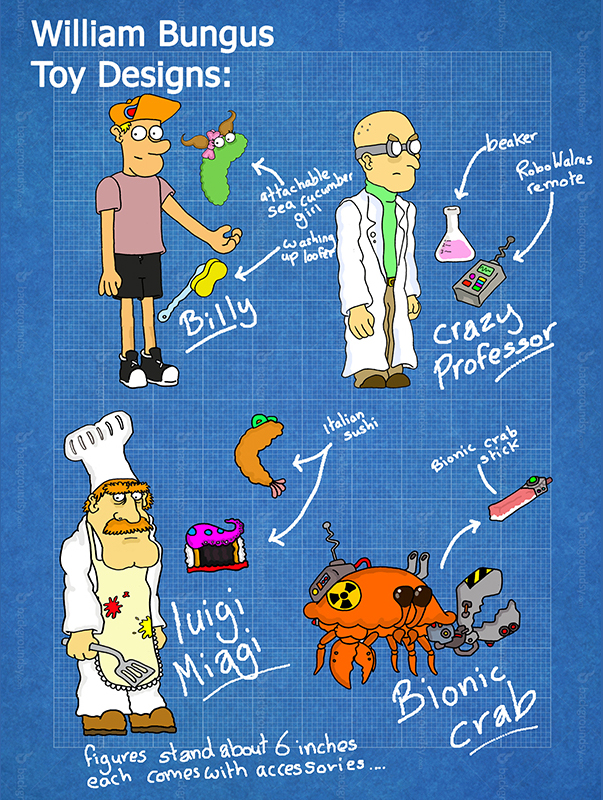 William Bungus
Toy Designs:
attachable
sea cucumber
girl
washing
up loofer
Billy
beaker
Robo Walrus
remote
crazy
Professor
Italian
sushi
luigi
Miagi
Bionic crab
stick
Bionic
crab
figures stand about 6 inches
each comes with accessories....